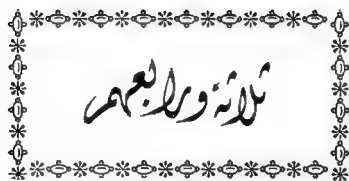 ثلاثة ورابعهم